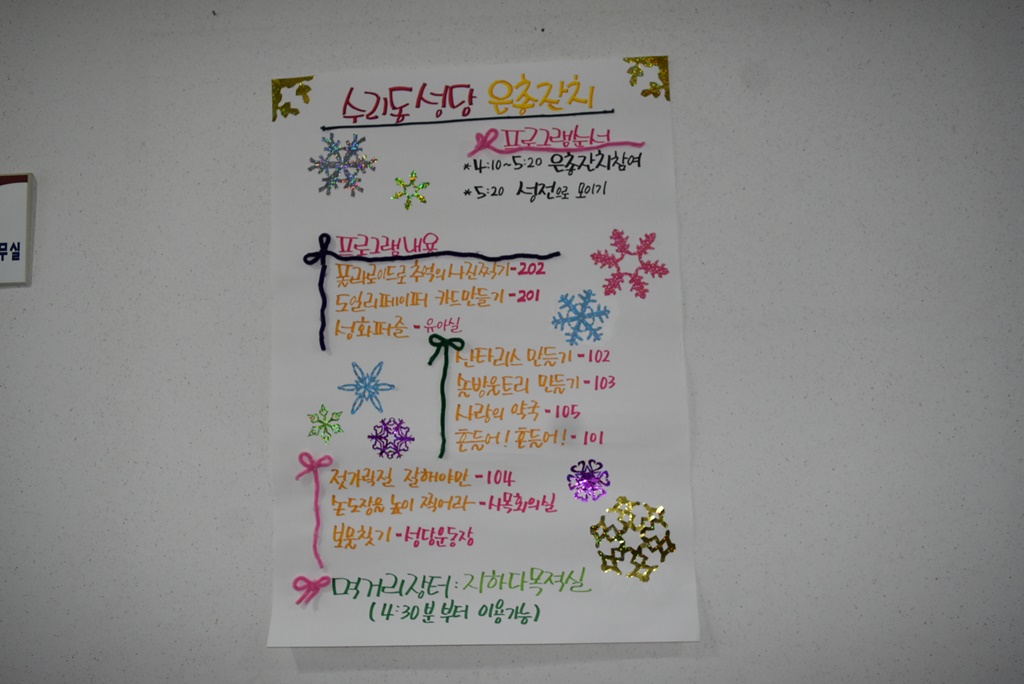 수리동성당 은총잔치
프로그램순서
*4:10~5:20 은총잔치참여
*5:20 성전으로 모이기
무실
프로그램내용
폴라로이드로 추억의 사진찍기-202
도일리페이퍼 카드만들기-201
성화퍼즐-유아실
산타리스 만들기-102
솔방울트리 만들기-103
사랑의 약국-105
흔들어! 흔들어!-101
젓가락질 잘해야만-104
눈도장을 높이 찍어라-사목회의실
보물찾기-성당운동장
먹거리장터:지하다목적실
(4:30분부터 이용가능)